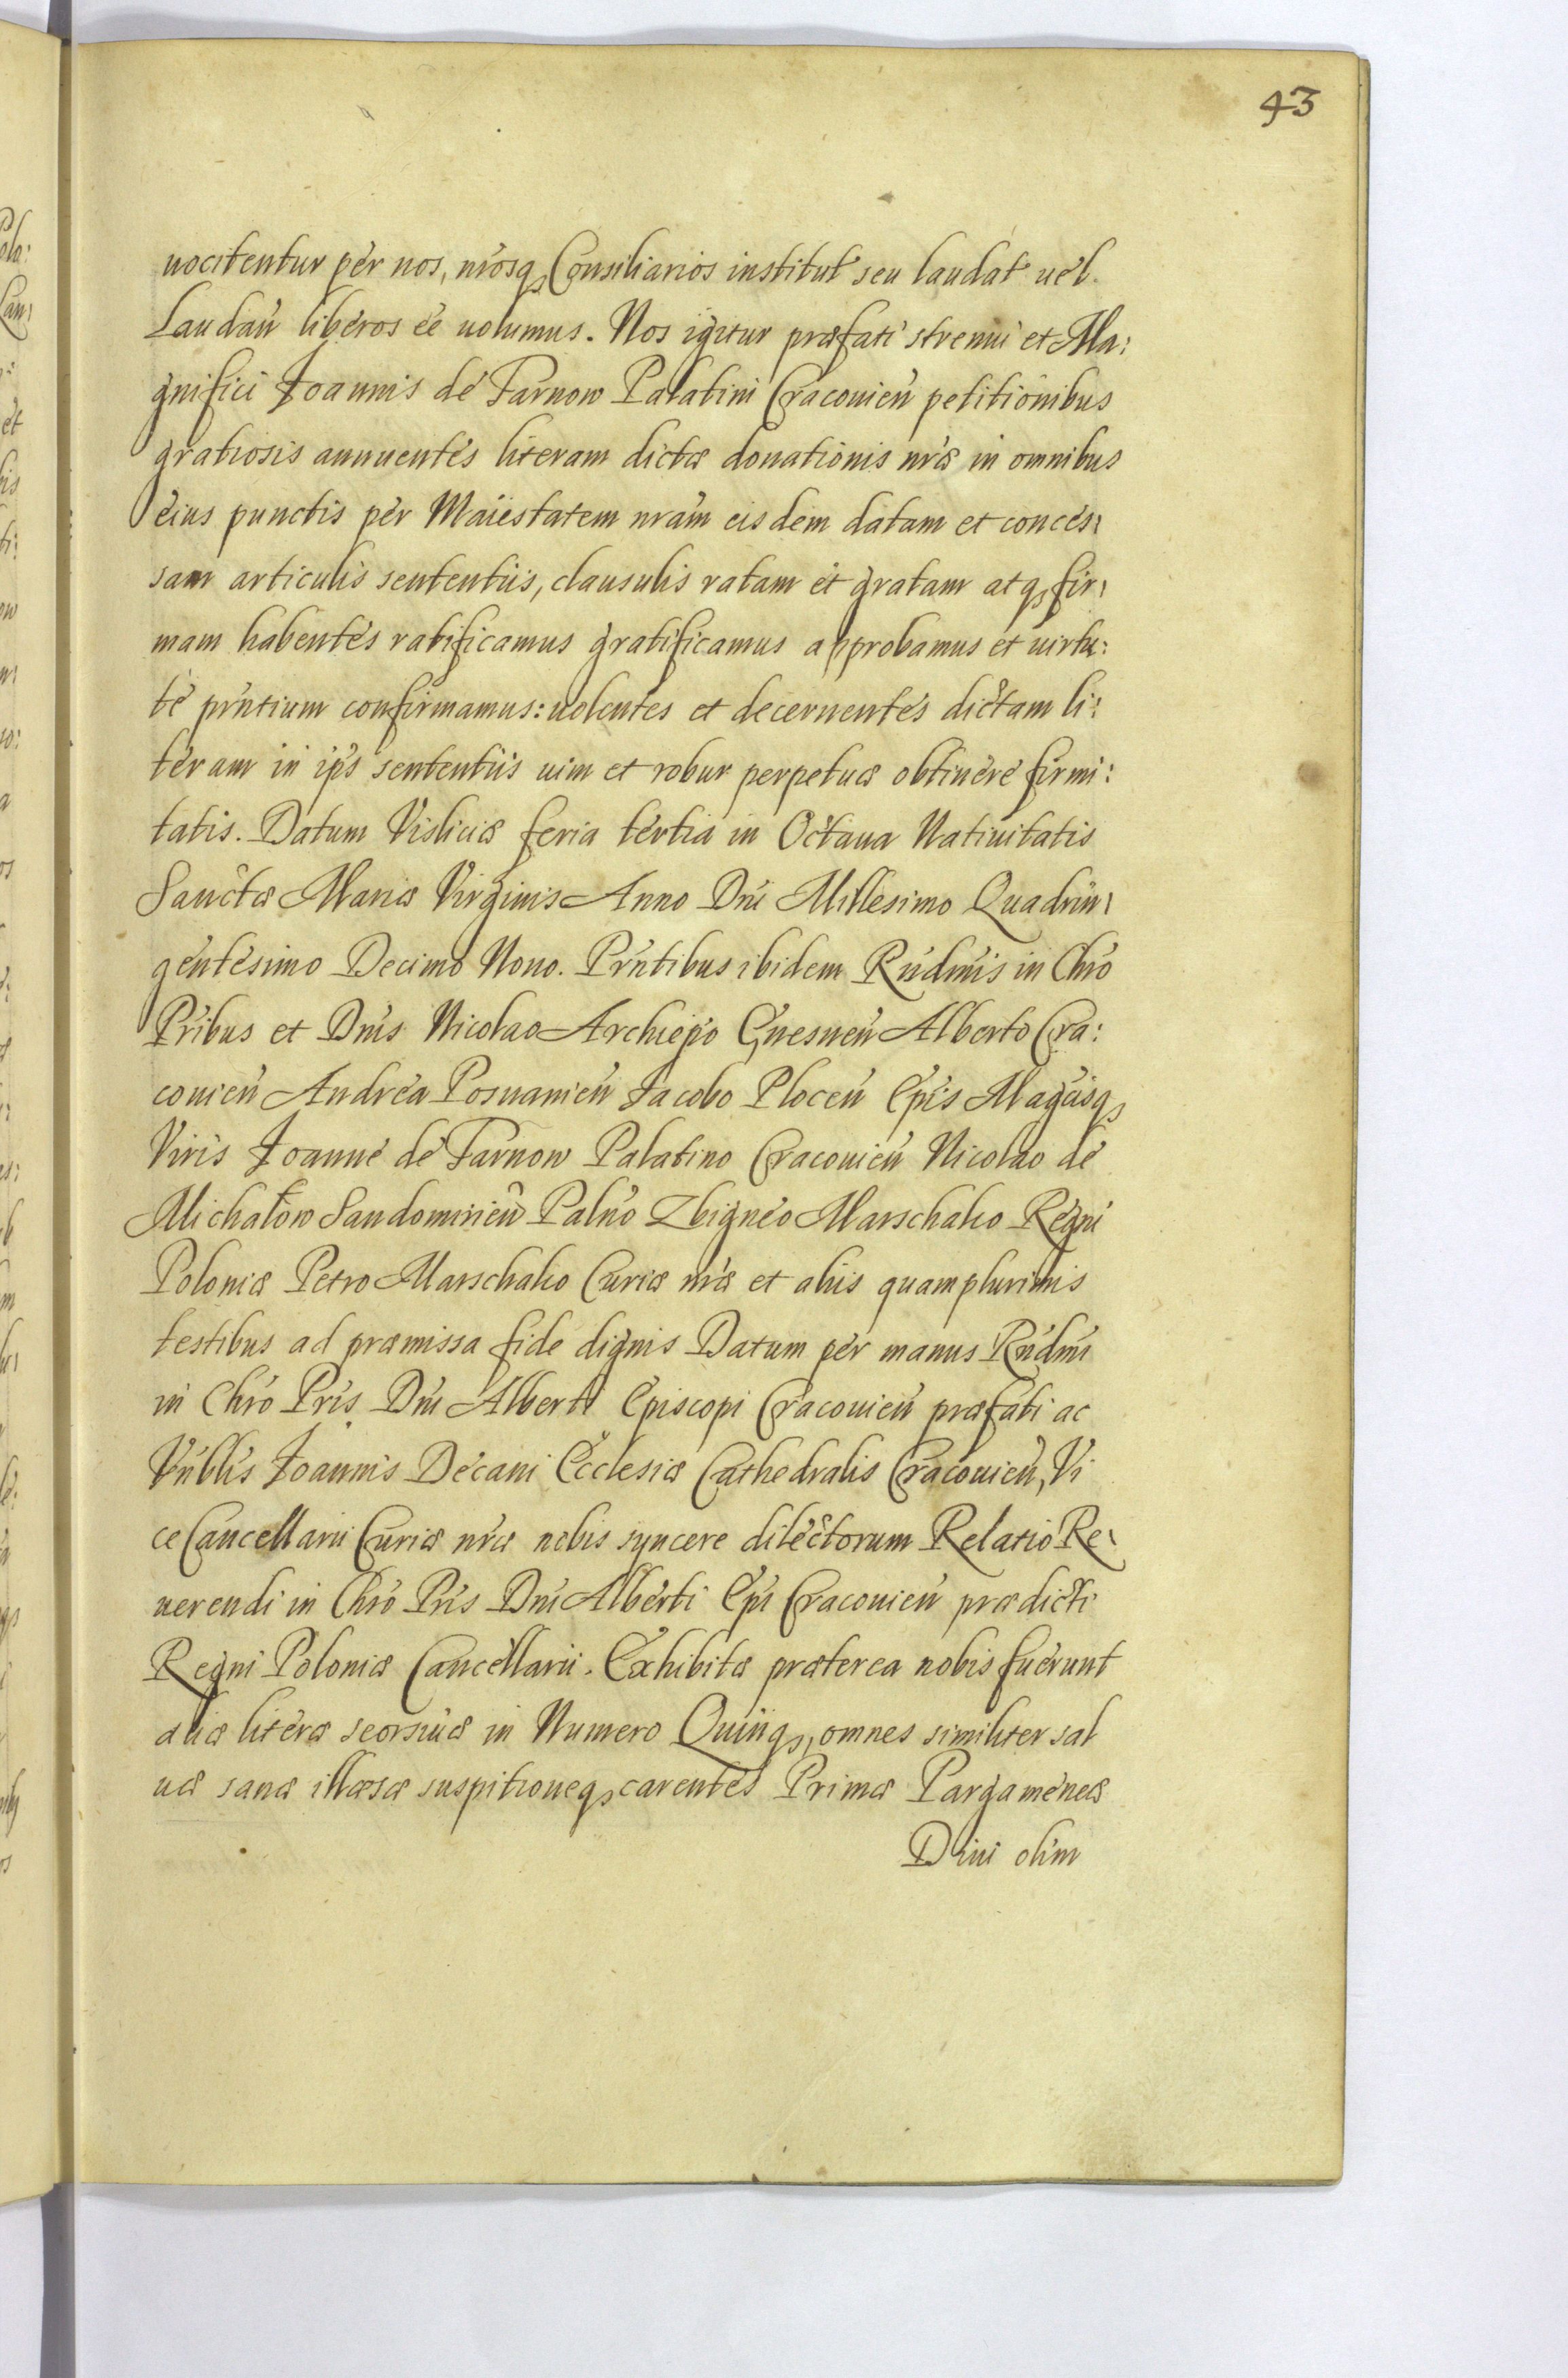 43
uocitentur per nos, nr̃osq; Consiliarios institut̃ seu laudat̃ uel
Laudañ liberos eẽ uolumus. Nos igitur præfati strenui et Ma:
gnifici Joannis de Tarnow Palatini Cracouieñ petitionibus
gratiosis annuentes literam dictæ donationis nr̃æ in omnibus
eius punctis per Maiestatem nr̃am eisdem datam et conces¬
sam articulis sententiis, clausulis ratam et gratam atq; fir¬
mam habentes ratificamus gratificamus approbamus et uirtu:
te pr̃ntium confirmamus: uolentes et decernentes dictam li:
teram in ip̃s sententiis uim et robur perpetuæ obtinere firmi:
tatis. Datum Visliciæ feria tertia in Octaua Natiuitatis
Sanctæ Mariæ Virginis Anno Dñi Millesimo Quadrin¬
gentesimo Decimo Nono. Pr̃ntibus ibidem Rñdmis in Chr̃o
Pr̃ibus et Dñis Nicolao Archiep̃o Gnesneñ Alberto Cra:
couieñ Andrea Posnanieñ Jacobo Ploceñ Ep̃is Mag̃cisq;
Viris Joanne de Tarnow Palatino Cracouieñ Nicolao de
Michałow Sandomirieñ Palñо Zbigneo Marschalco Regni
Poloniæ Petro Marschalco Curiæ nr̃æ et aliis quamplurimis
testibus ad præmissa fide dignis Datum per manus Rñdmi
in Chr̃o Pr̃is Dñi Alberti Episcopi Cracouieñ præfati ac
Vñblis Joannis Decani Ecclesiæ Cathedralis Cracouieñ, Vi
ce Cancellarii Curiæ nr̃æ nobis syncere dilectorum Relatio Re¬
uerendi in Chr̃o Pr̃is Dñi Alberti Ep̃i Cracouieñ prædicti
Regni Poloniæ Cancellarii. Exhibitæ præterea nobis fuerunt
aliæ literæ seorsiuæ in Numero Quinq;, omnes similiter sal
uæ sanæ illæsæ suspitioneq; carentes Primæ Pargameneæ
Diui olim